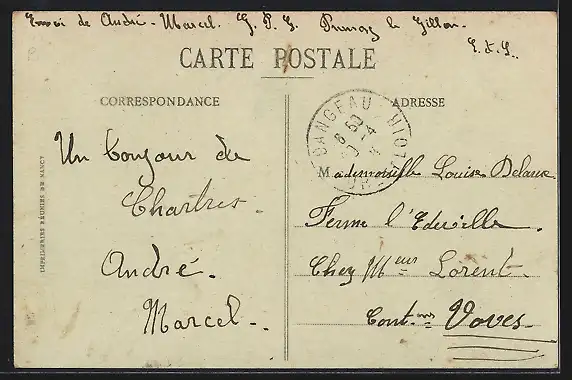 Envoi de André-Marcel. G. P. G. Prunay le Gillon.
E. & L.
CARTE POSTALE
CORRESPONDANCE
ADRESSE
IMPRIMERIES RÉUNIES DE NANCY
DANGEAU
Un bonjour de
Chartres.
André.
Marcel.
Mademoiselle Louise Delaux
Ferme l'Ederville.
Chez Mr Lorent.
Cont. Voves.